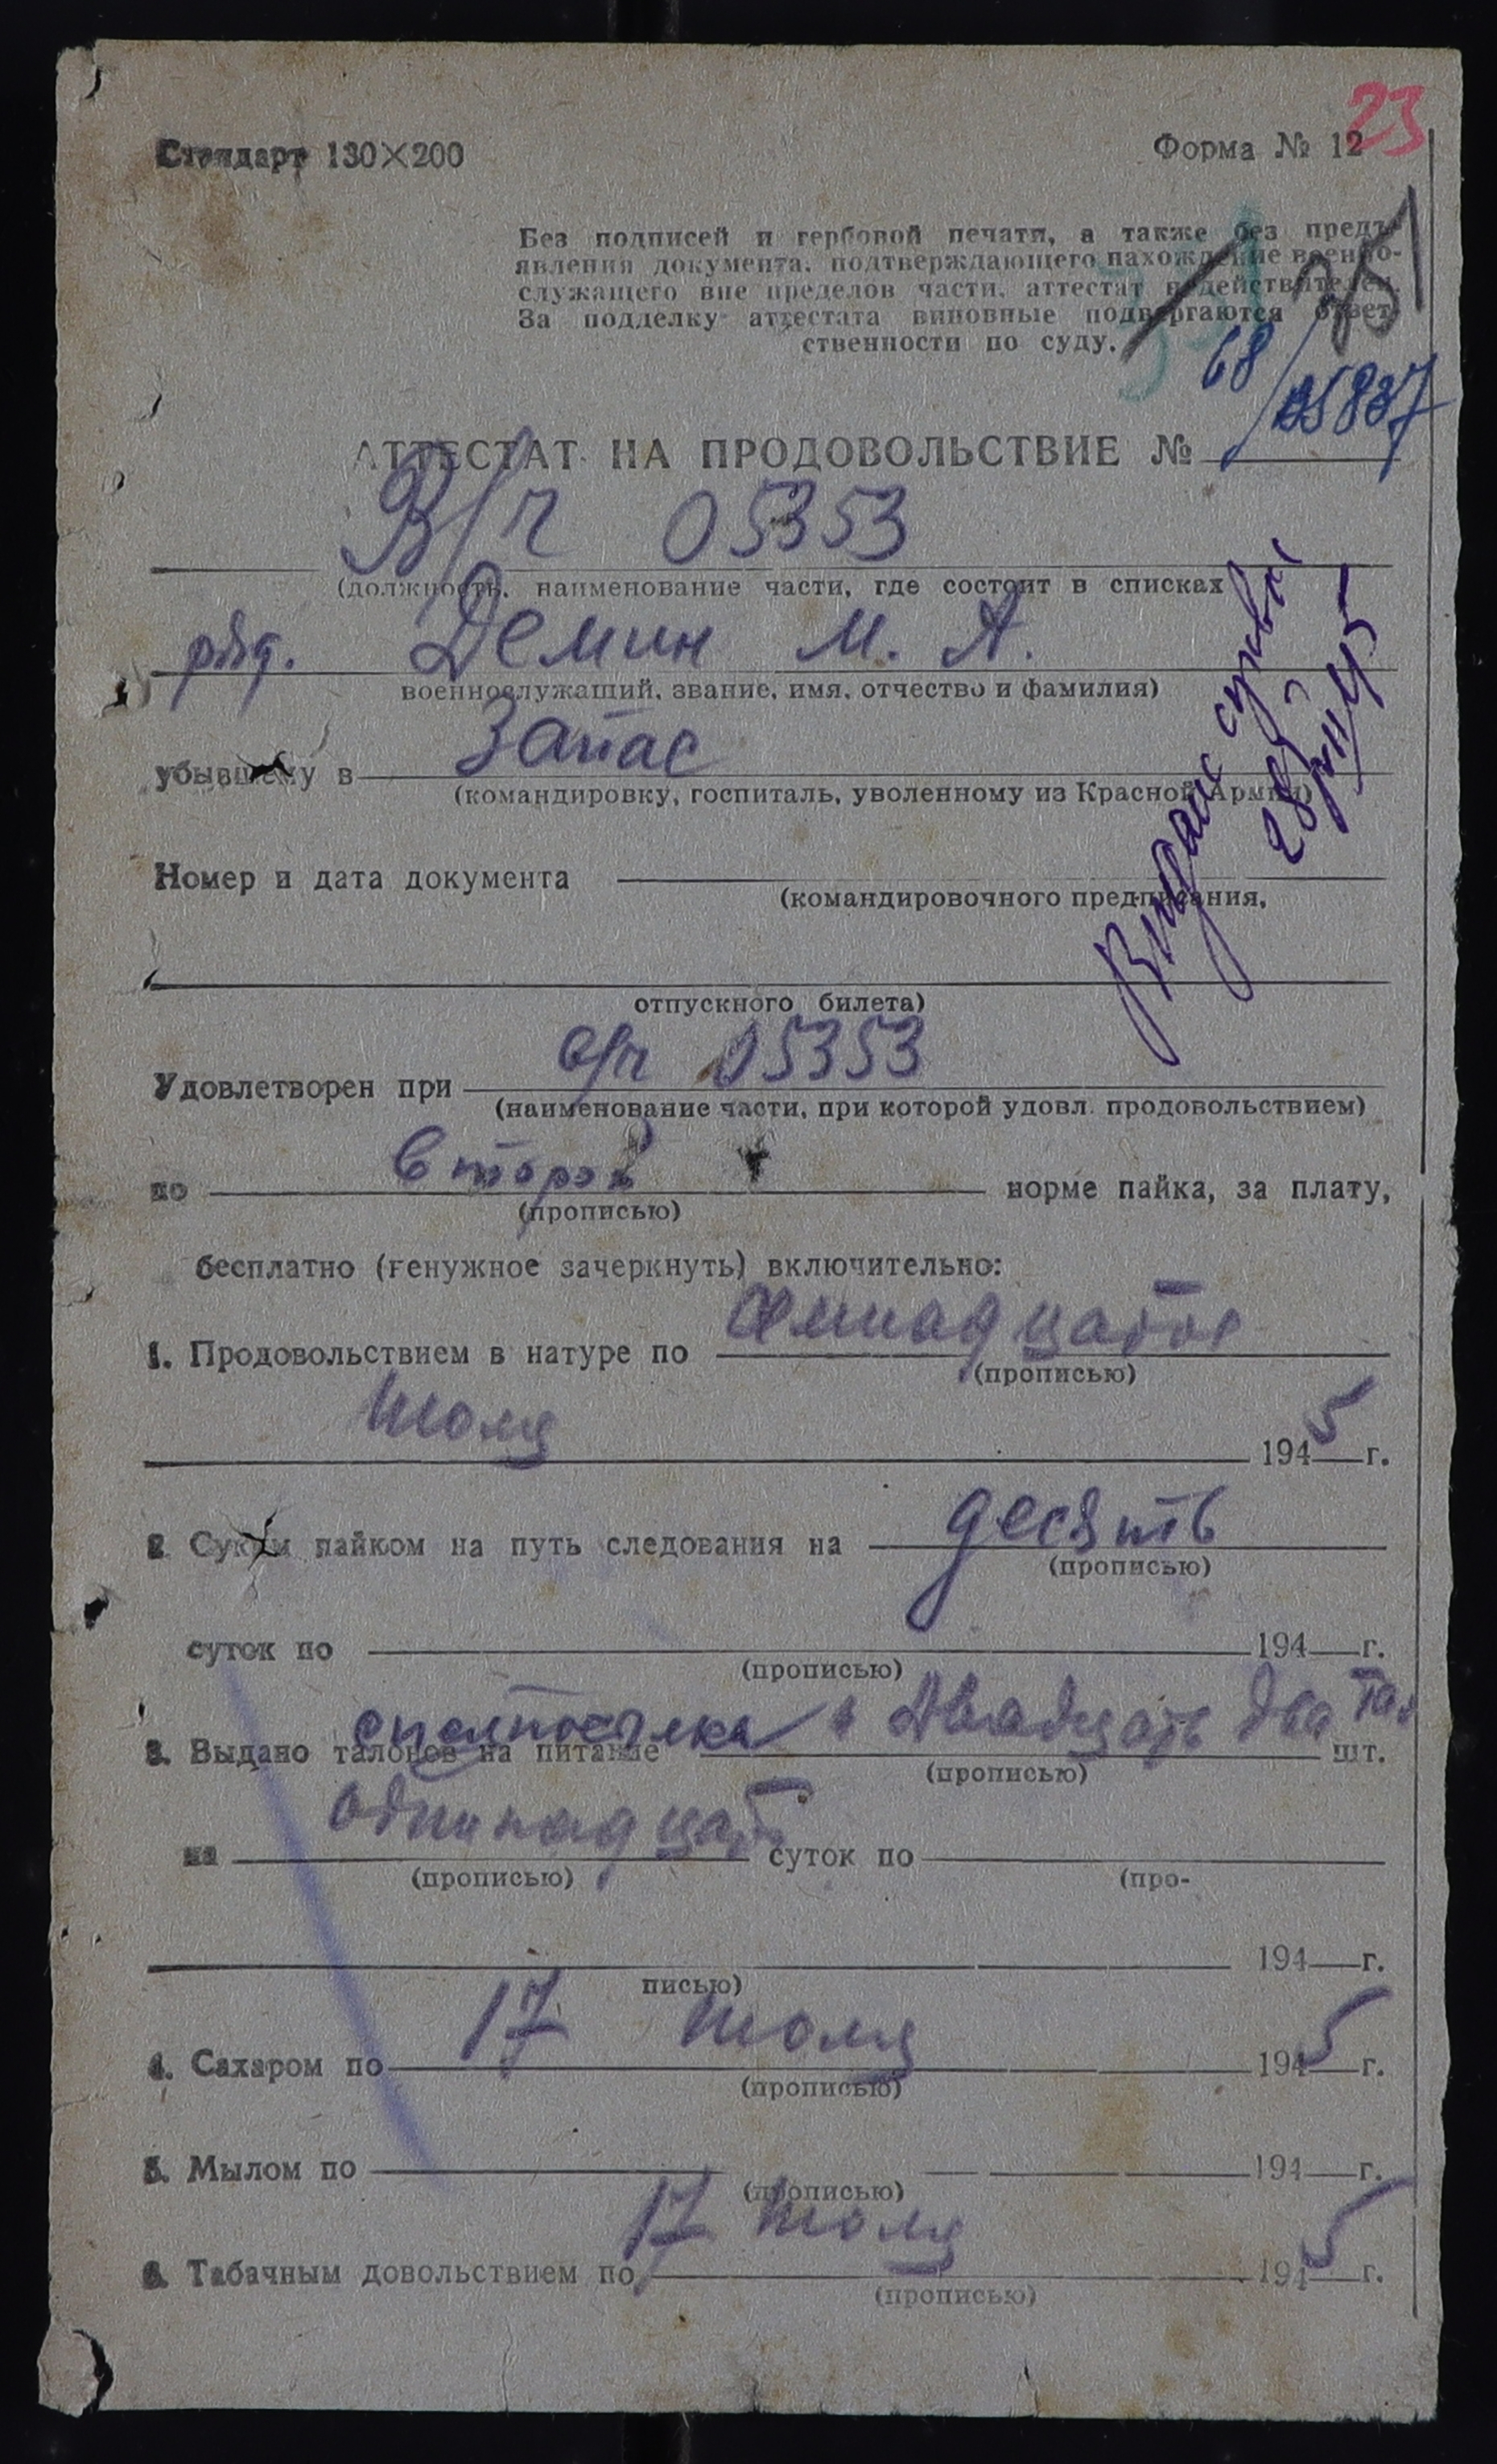 23
Стандарт 130×200 Форма № 12
Без подписей и гербовой печати, а также без предъ-
явления документа, подтверждающего нахождение военно-
служащего вне пределов части, аттестат недействителен.
За подделку аттестата виновные подвергаются ответ-
ственности по суду.
68/
АТТЕСТАТ НА ПРОДОВОЛЬСТВИЕ №
В/ч 05353
(должность, наименование части, где состоит в списках
ряд. Демин М. А.
военнослужащий, звание, имя, отчество и фамилия)
убывшему в запас
(командировку, госпиталь, уволенному из Красной Армии)
Номер и дата документа
(командировочного предписания,
отпускного билета)
Удовлетворен при в/ч 05353
(наименование части, при которой удовл. продовольствием)
по второй норме пайка, за плату,
(прописью)
бесплатно (ненужное зачеркнуть) включительно:
1. Продовольствием в натуре по
(прописью)
июля 1945 г.
2. Сухим пайком на путь следования на десять
(прописью)
суток по 194 г.
(прописью)
3. Выдано талонов на питание двадцать два тал шт.
(прописью)
на одинадцать суток по
(прописью) (про-
194 г.
писью)
4. Сахаром по 17 июля 1945 г.
(прописью)
5. Мылом по 194 г.
(прописью)
6. Табачным довольствием по 17 июля 1945 г.
(прописью)